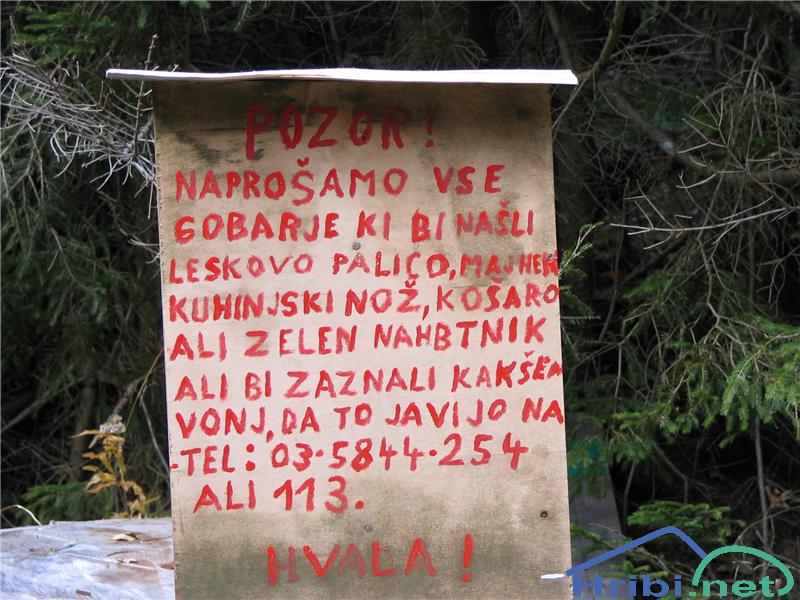 POZOR!
NAPROŠAMO VSE
GOBARJE KI BI NAŠLI
LESKOVO PALICO, MAJHEN
KUHINJSKI NOŽ, KOŠARO
ALI ZELEN NAHBTNIK
ALI BI ZAZNALI KAKŠEN
VONJ, DA TO JAVIJO NA
TEL: 03-5844-254
ALI 113.
HVALA!
Hribi.net